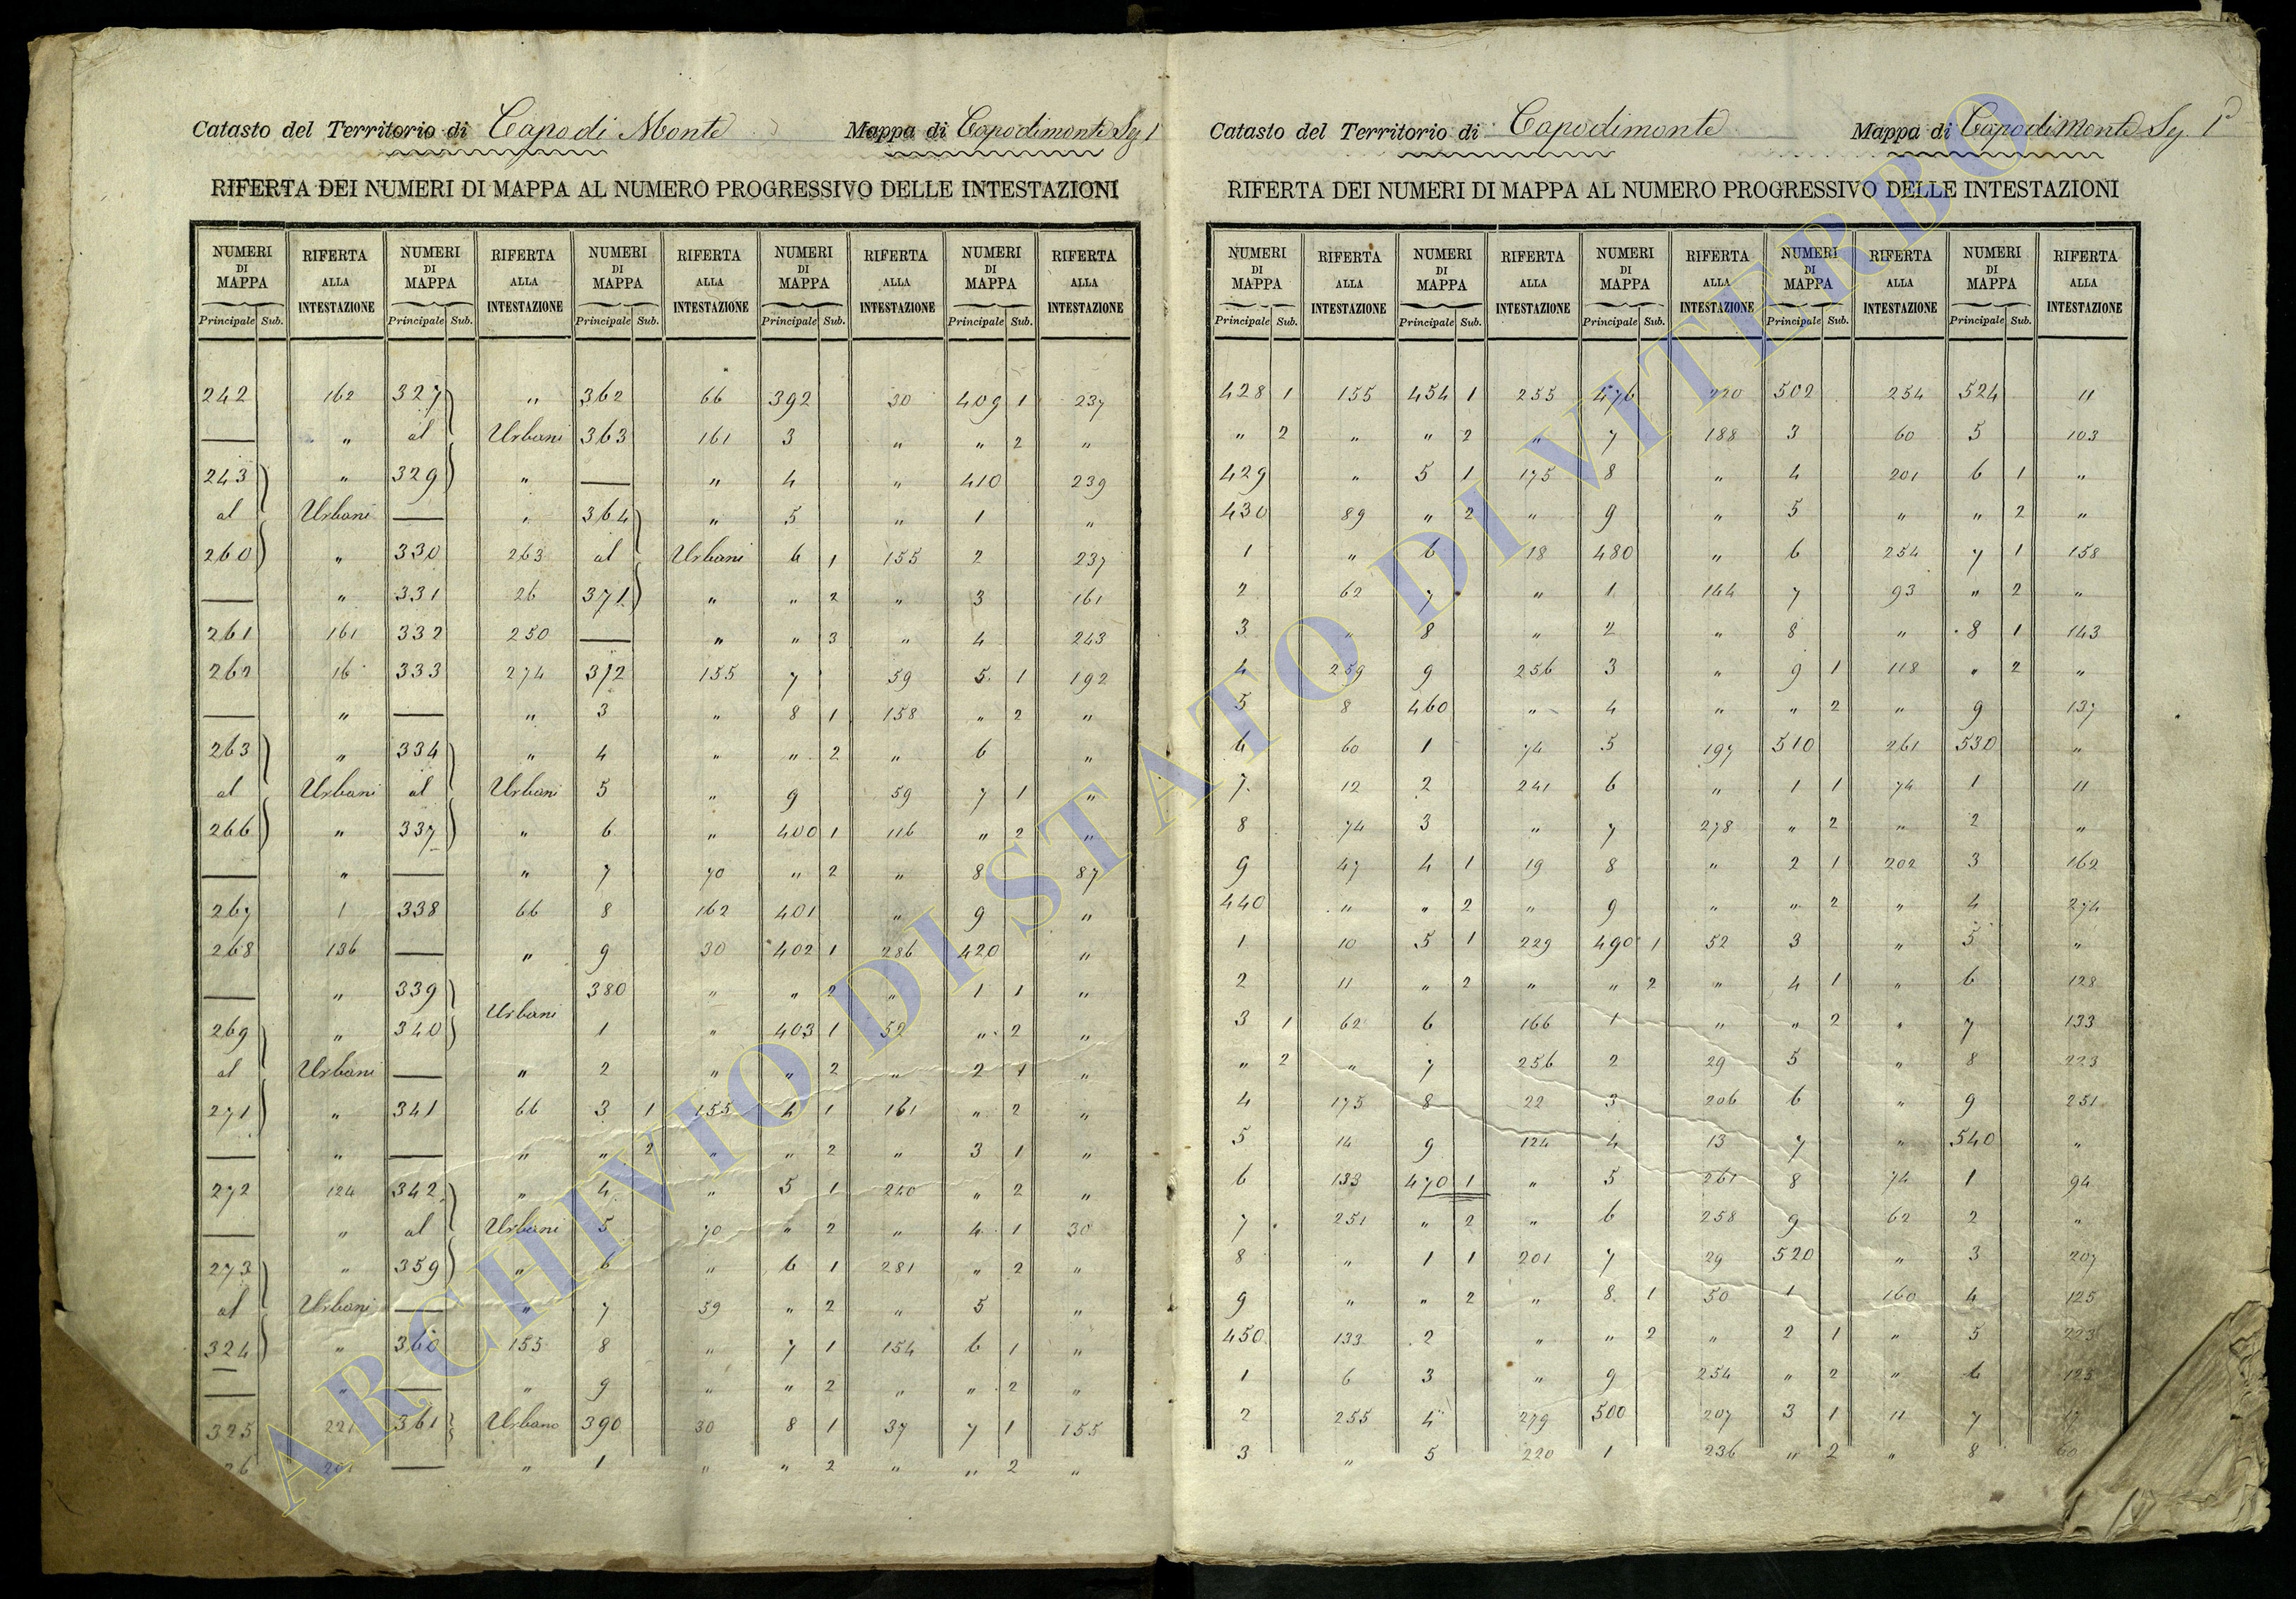 Catasto del Territorio di Capo di Monte Mappa di Capodimonte Seg 1
RIFERTA DEI NUMERI DI MAPPA AL NUMERO PROGRESSIVO DELLE INTESTAZIONI
NUMERI DI MAPPA RIFERTA ALLA INTESTAZIONE NUMERI DI MAPPA RIFERTA ALLA INTESTAZIONE NUMERI DI MAPPA RIFERTA ALLA INTESTAZIONE NUMERI DI MAPPA RIFERTA ALLA INTESTAZIONE NUMERI DI MAPPA RIFERTA ALLA INTESTAZIONE
Principale Sub. Principale Sub. Principale Sub. Principale Sub. Principale Sub.
242 162 327 " 362 66 392 30 409 1 237
— " al Urbani 363 161 3 " " 2 "
243 " 329 " — " 4 " 410 239
al Urbani — " 364 " 5 " 1 "
260 " 330 263 al Urbani 6 1 155 2 237
— " 331 26 371 " " 2 " 3 161
261 161 332 250 — " " 3 " 4 243
262 16 333 274 372 155 7 59 5 1 192
— " — " 3 " 8 1 158 " 2 "
263 " 334 " 4 " " 2 " 6 "
al Urbani al Urbani 5 " 9 59 7 1 "
266 " 337 " 6 " 400 1 116 " 2 "
— " — " 7 70 " 2 " 8 87
267 1 338 66 8 162 401 " 9 "
268 136 — " 9 30 402 1 286 420 "
— " 339 Urbani 380 " " 2 " 1 1 "
269 " 340 1 " 403 1 52 " 2 "
al Urbani — " 2 " " 2 " 2 1 "
271 " 341 66 3 1 155 4 1 161 " 2 "
— " — " " 2 " " 2 " 3 1 "
272 124 342 " 4 " 5 1 240 " 2 "
— " al Urbani 5 70 " 2 " 4 1 30
273 " 359 " 6 " 6 1 281 " 2 "
al Urbani — " 7 59 " 2 " 5 "
324 " 360 155 8 " 7 1 154 6 1 "
— " — " 9 " " 2 " " 2 "
325 221 361 Urbano 390 30 8 1 37 7 1 155
26 — " 1 " " 2 " " 2 "
Catasto del Territorio di Capodimonte Mappa di Capodimonte Seg. 1ª
RIFERTA DEI NUMERI DI MAPPA AL NUMERO PROGRESSIVO DELLE INTESTAZIONI
NUMERI DI MAPPA RIFERTA ALLA INTESTAZIONE NUMERI DI MAPPA RIFERTA ALLA INTESTAZIONE NUMERI DI MAPPA RIFERTA ALLA INTESTAZIONE NUMERI DI MAPPA RIFERTA ALLA INTESTAZIONE NUMERI DI MAPPA RIFERTA ALLA INTESTAZIONE
Principale Sub. Principale Sub. Principale Sub. Principale Sub. Principale Sub.
428 1 155 454 1 255 476 220 502 254 524 11
" 2 " " 2 " 7 188 3 60 5 103
429 " 5 1 175 8 " 4 201 6 1 "
430 89 " 2 " 9 " 5 " " 2 "
1 " 6 18 480 " 6 254 7 1 158
2 62 7 " 1 144 7 93 " 2 "
3 " 8 " 2 " 8 " 8 1 143
4 259 9 256 3 " 9 1 118 " 2 "
5 8 460 " 4 " " 2 " 9 137
6 60 1 74 5 197 510 261 530 "
7 12 2 241 6 " 1 1 74 1 11
8 74 3 " 7 278 " 2 " 2 "
9 47 4 1 19 8 " 2 1 202 3 162
440 " " 2 " 9 " " 2 " 4 274
1 10 5 1 229 490 1 52 3 " 5 "
2 11 " 2 " " 2 " 4 1 " 6 128
3 1 62 6 166 1 " " 2 " 7 133
" 2 " 7 256 2 29 5 " 8 223
4 175 8 22 3 206 6 " 9 251
5 14 9 124 4 13 7 " 540 "
6 133 470 1 " 5 261 8 74 1 94
7 251 " 2 " 6 258 9 62 2 "
8 " 1 1 201 7 29 520 " 3 207
9 " " 2 " 8 1 50 1 160 4 125
450 133 2 " " 2 " 2 1 " 5 223
1 6 3 " 9 254 " 2 " 6 125
2 255 4 279 500 207 3 1 11 7
3 " 5 220 1 236 " 2 " 8 60
ARCHIVIO DI STATO DI VITERBO